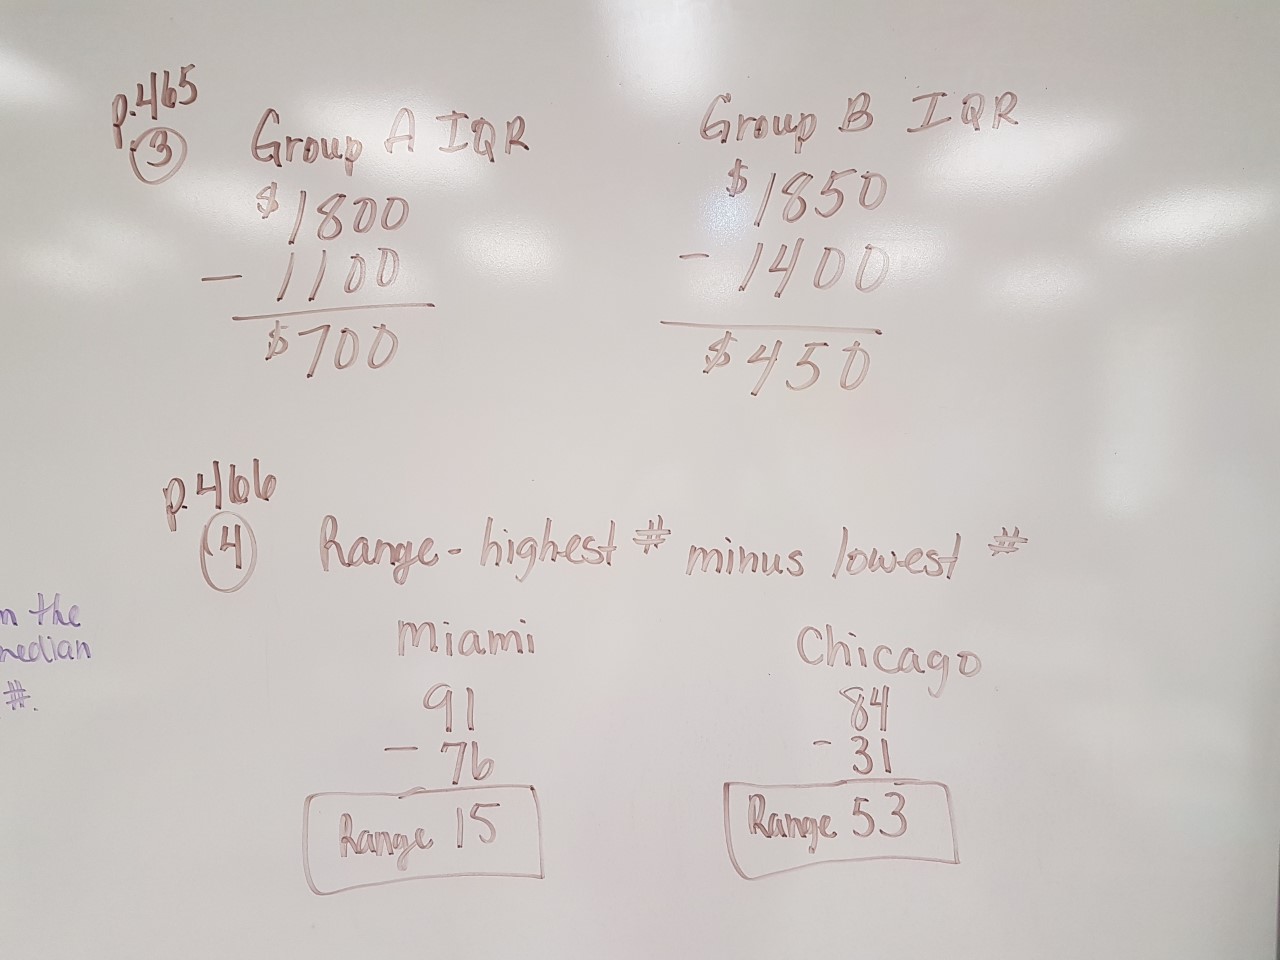 p.465
3
Group A IQR
$1800
- 1100
$700
Group B IQR
$1850
- 1400
$450
p.466
4
Range - highest # minus lowest #
Miami
91
- 76
Range 15
Chicago
84
- 31
Range 53
the
#.